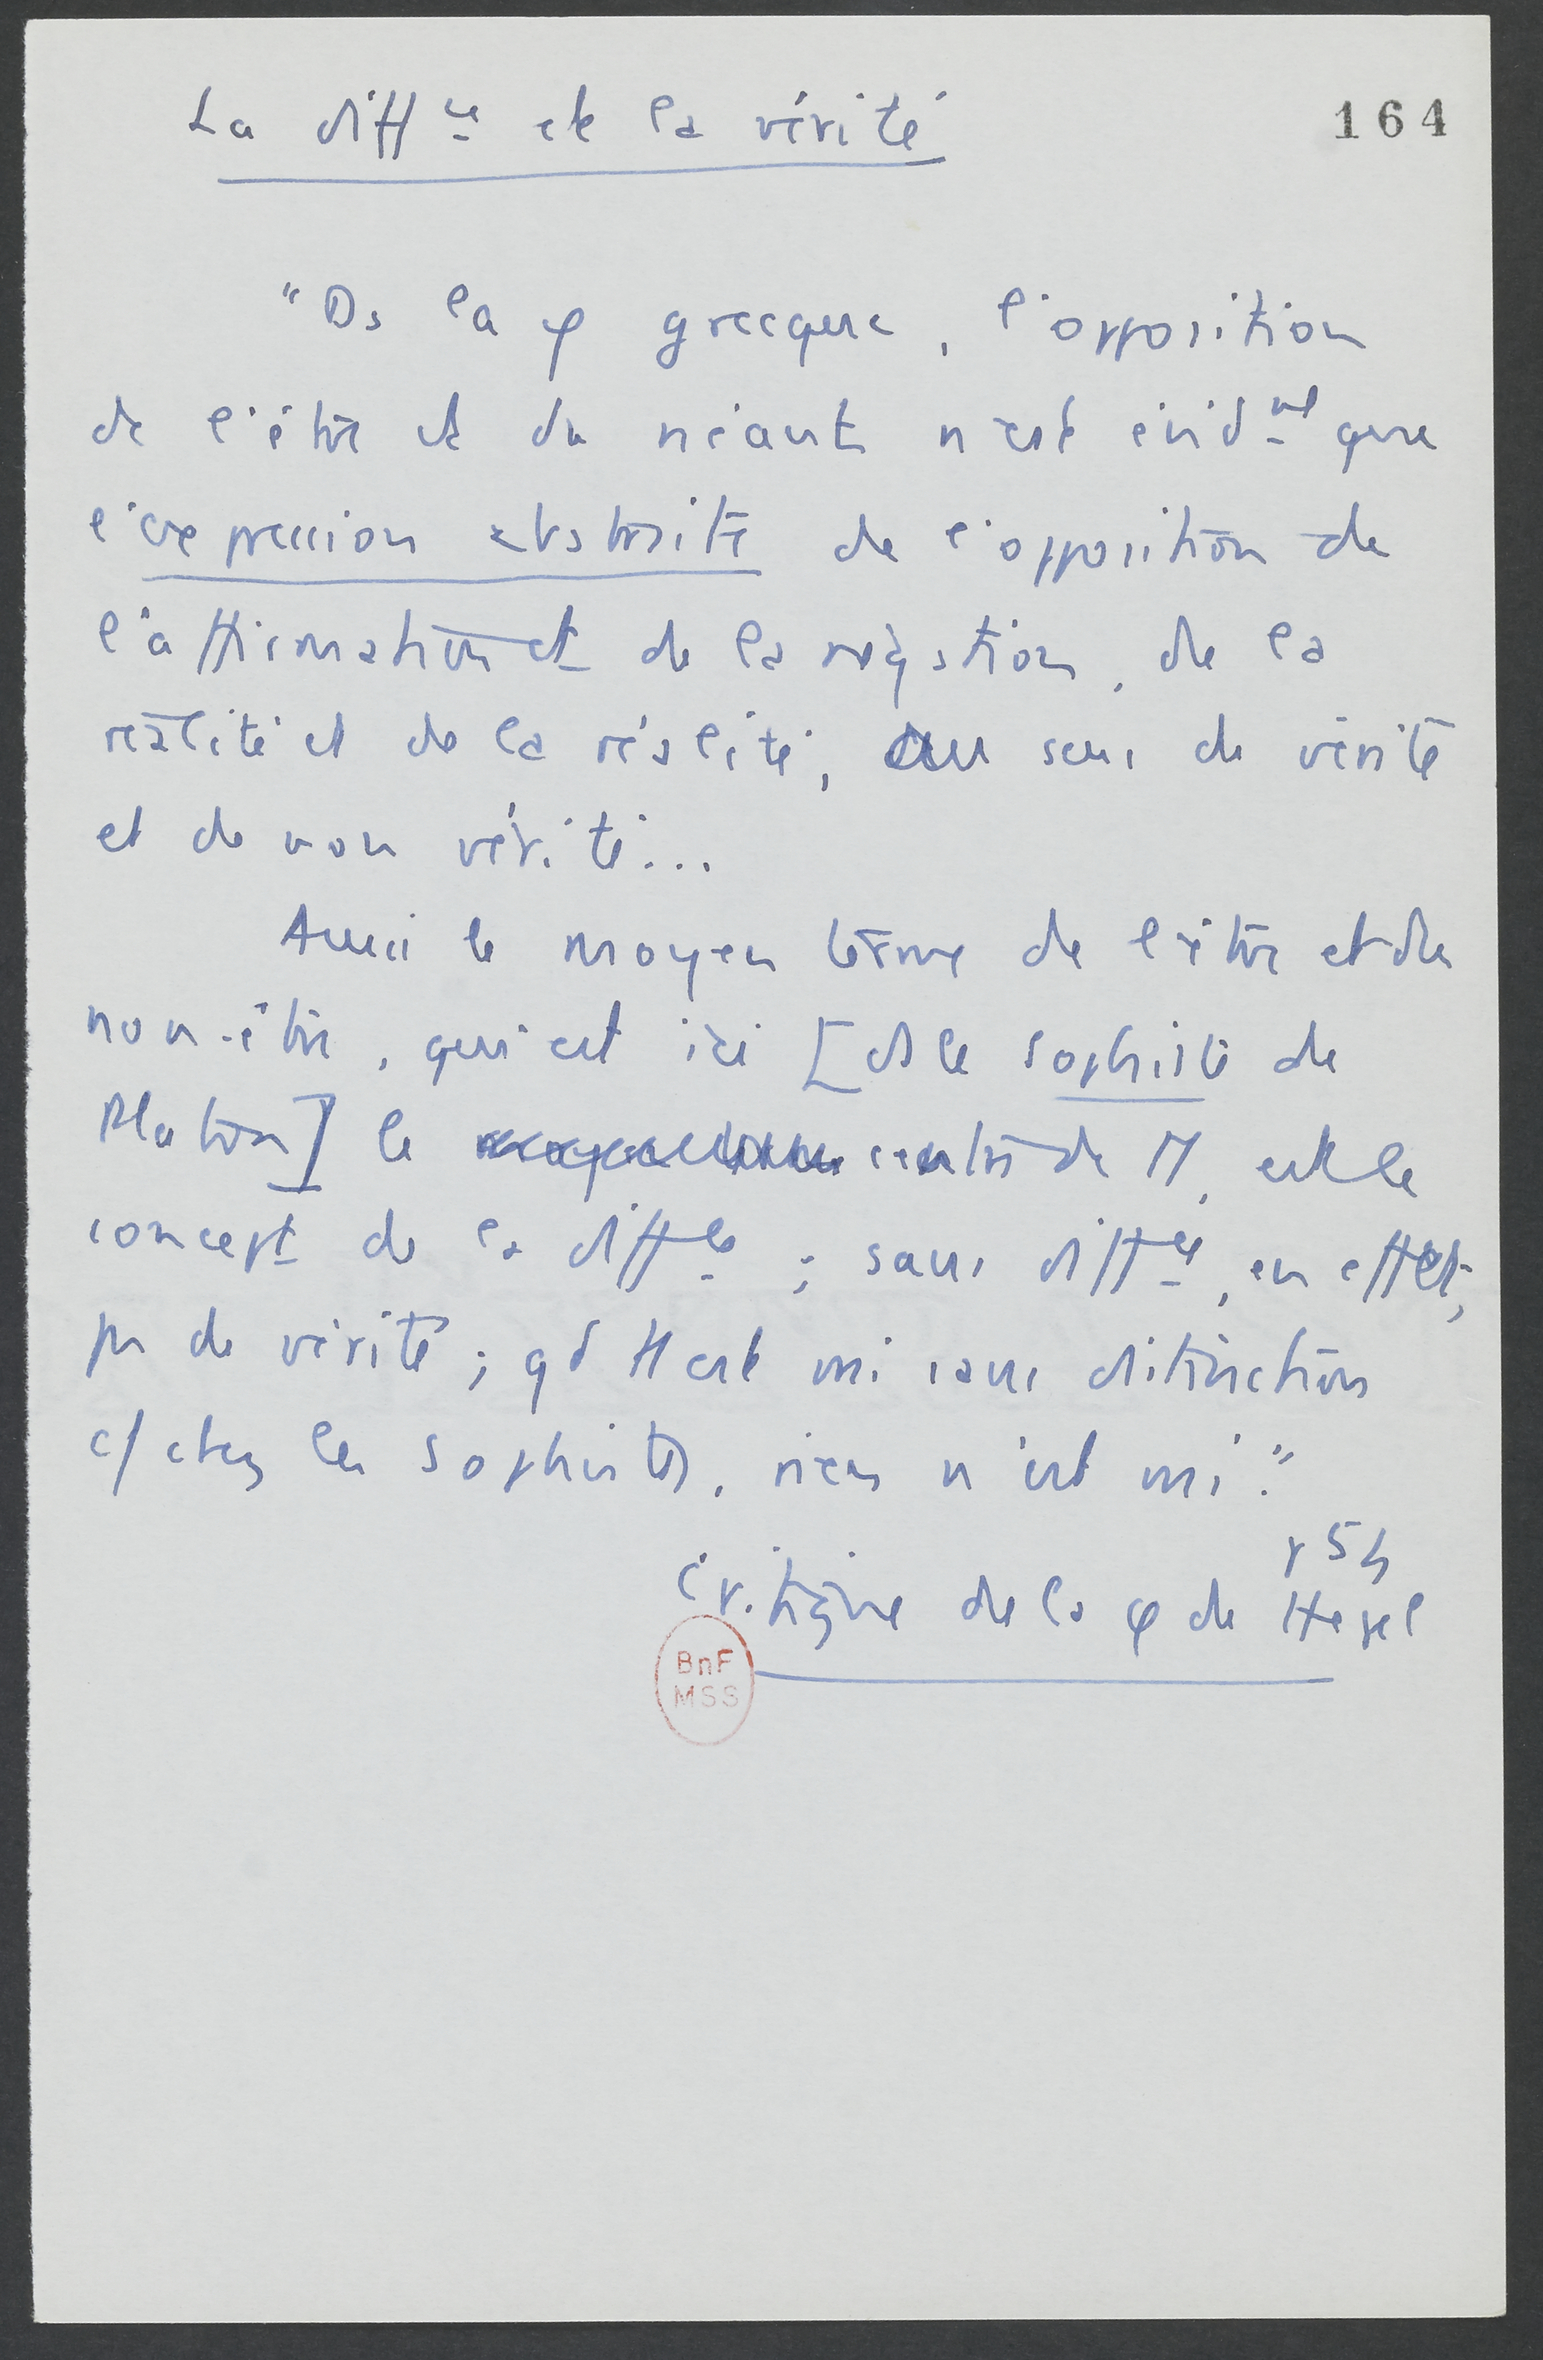 La diffce et la vérité
164
"Ds la φ grecque, l'opposition
de l'être et du néant n'est évidmt que
l'expression abstraite de l'opposition de
l'affirmation et de la négation, de la
réalité et de la réalité, au sens de vérité
et de non vérité...
Aussi le moyen terme de l'être et du
non-être, qui est ici [ds le Sophiste de
Platon] le centre de tt, est le
concept de la diffce ; sans diffce, en effet,
pas de vérité ; qd tt est vrai sans distinction
c/ chez les Sophistes, rien n'est vrai."
p 54
Critique de la φ de Hegel
BnF
MSS